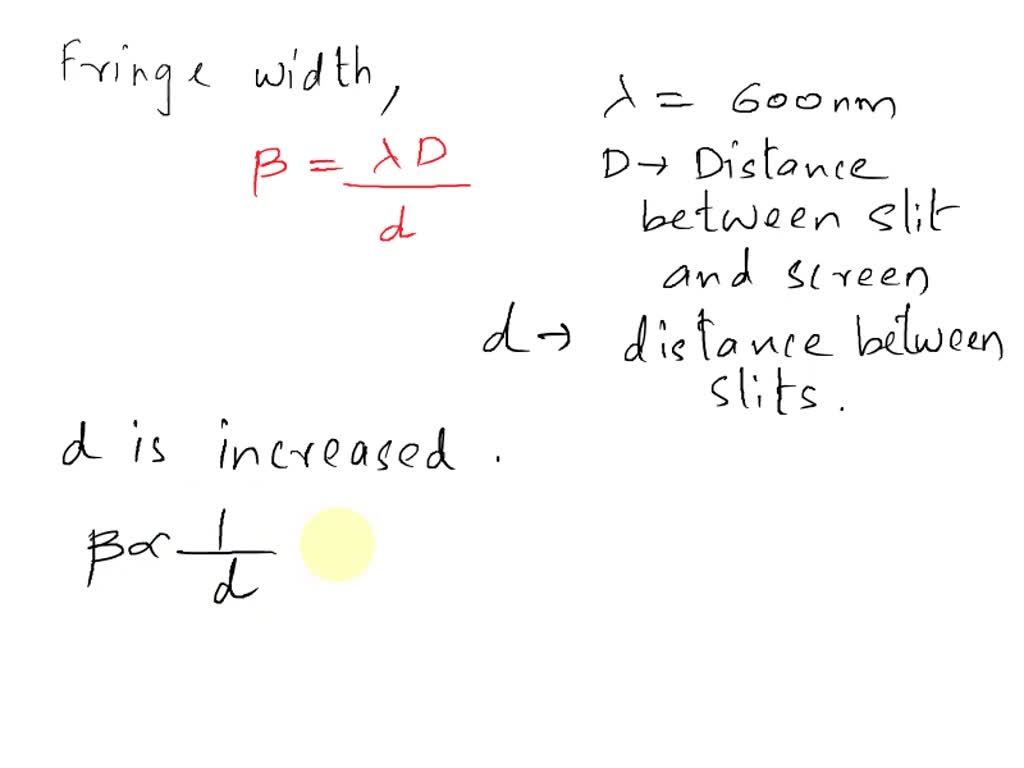 Fringe width,
β = λD / d
λ = 600nm
D → Distance
between slit
and screen
d → distance between
slits.
d is increased.
β ∝ 1 / d